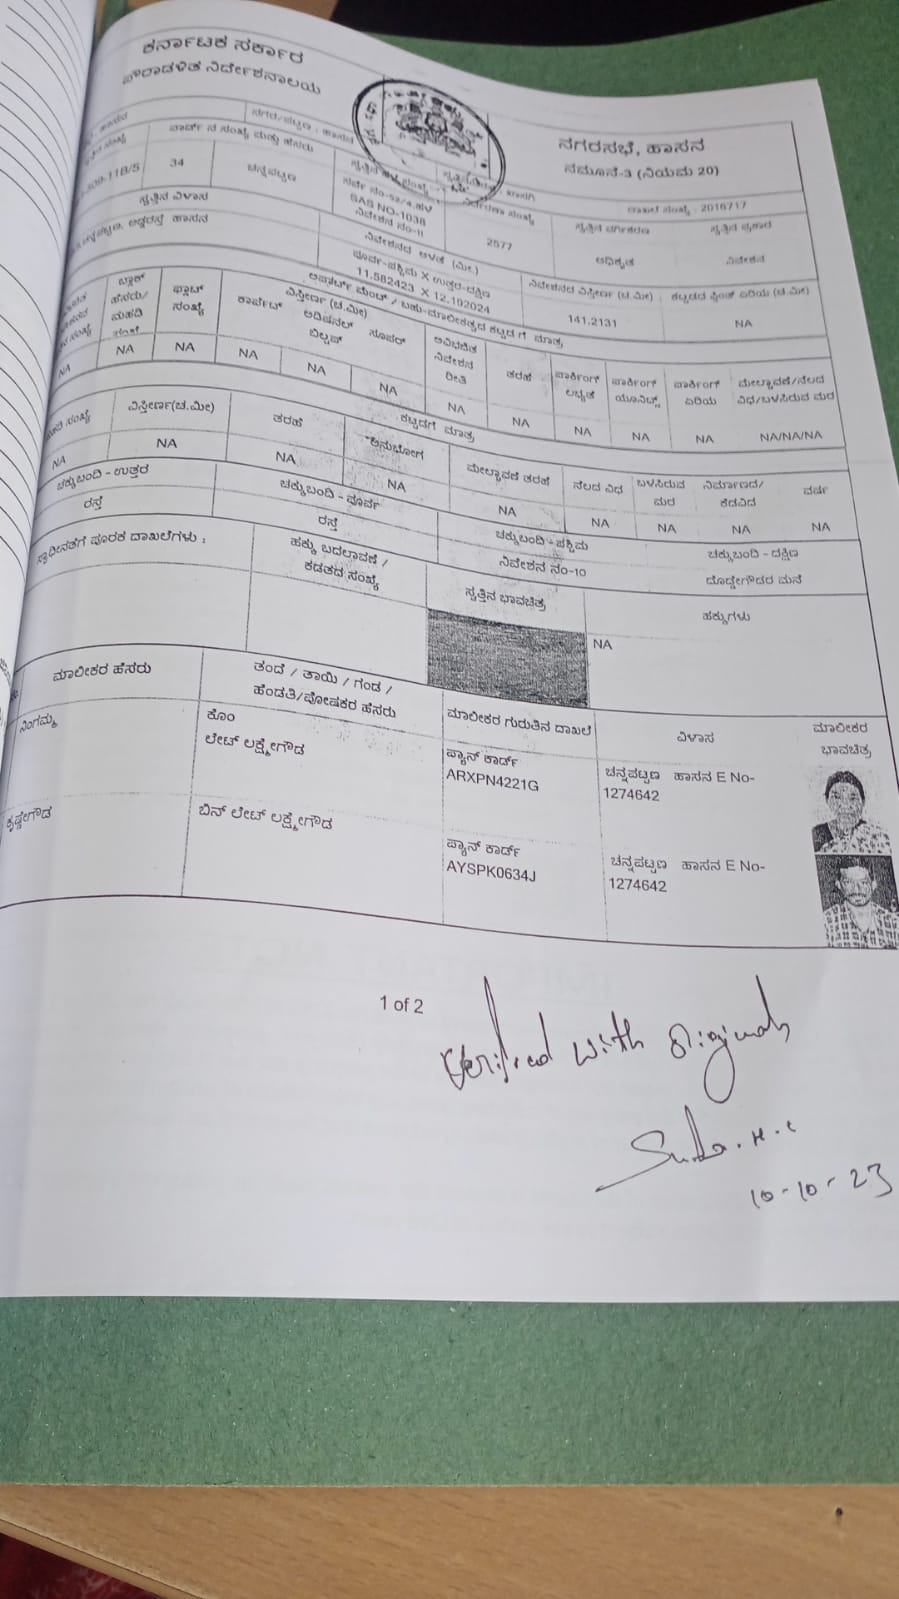 ಕರ್ನಾಟಕ ಸರ್ಕಾರ
ಪೌರಾಡಳಿತ ನಿರ್ದೇಶನಾಲಯ
ನಗರಸಭೆ, ಹಾಸನ
ನಮೂನೆ-3 (ನಿಯಮ 20)
ನಗರ/ಪಟ್ಟಣ : ಹಾಸನ
ದಾಖಲೆ ಸಂಖ್ಯೆ : 2016717
ವಾರ್ಡ್ ನ ಸಂಖ್ಯೆ ಮತ್ತು ಹೆಸರು
ಸ್ವತ್ತಿನ ವರ್ಗೀಕರಣ ಸ್ವತ್ತಿನ ಪ್ರಕಾರ
34 ಚನ್ನಪಟ್ಟಣ
SAS NO-1038
ನಿವೇಶನ ನಂ-11
2577 ಅಧಿಕೃತ ನಿವೇಶನ
ಸ್ವತ್ತಿನ ವಿಳಾಸ ನಿವೇಶನದ ಅಳತೆ (ಮೀ.) ನಿವೇಶನದ ವಿಸ್ತೀರ್ಣ (ಚ.ಮೀ) ಕಟ್ಟಡದ ಪ್ಲಿಂತ್ ಏರಿಯ (ಚ.ಮೀ)
ಪೂರ್ವ-ಪಶ್ಚಿಮ X ಉತ್ತರ-ದಕ್ಷಿಣ
11.582423 X 12.192024 141.2131 NA
ಅಪಾರ್ಟ್ ಮೆಂಟ್ / ಬಹು-ಮಾಲೀಕತ್ವದ ಕಟ್ಟಡಗೆ ಮಾತ್ರ
ಬ್ಲಾಕ್ ಹೆಸರು/ ಮಹಡಿ ಫ್ಲಾಟ್ ಸಂಖ್ಯೆ ವಿಸ್ತೀರ್ಣ (ಚ.ಮೀ) ಅವಿಭಜಿತ ನಿವೇಶನ ರೀತಿ ತರಹೆ ಪಾರ್ಕಿಂಗ್ ಲಭ್ಯತೆ ಪಾರ್ಕಿಂಗ್ ಯೂನಿಟ್ಸ್ ಪಾರ್ಕಿಂಗ್ ಏರಿಯ ಮೇಲ್ಛಾವಣಿ/ನೆಲದ ವಿಧ/ಬಳಸಿರುವ ಮರ
ಕಾರ್ಪೆಟ್ ಅಡಿಷನಲ್ ಬಿಲ್ಟಪ್ ಸೂಪರ್
NA NA NA NA NA NA NA NA NA NA NA NA/NA/NA
ಕಟ್ಟಡಗೆ ಮಾತ್ರ
ವಿಸ್ತೀರ್ಣ(ಚ.ಮೀ) ತರಹೆ ಅನುಭೋಗ ಮೇಲ್ಛಾವಣಿ ತರಹೆ ನೆಲದ ವಿಧ ಬಳಸಿರುವ ಮರ ನಿರ್ಮಾಣದ/ ವರ್ಷ
NA NA NA NA NA NA NA NA NA
ಚಕ್ಕುಬಂದಿ - ಉತ್ತರ ಚಕ್ಕುಬಂದಿ - ಪೂರ್ವ ಚಕ್ಕುಬಂದಿ - ಪಶ್ಚಿಮ ಚಕ್ಕುಬಂದಿ - ದಕ್ಷಿಣ
ರಸ್ತೆ ರಸ್ತೆ ನಿವೇಶನ ನಂ-10 ದೊಡ್ಡೇಗೌಡರ ಮನೆ
ಸ್ವಾಧೀನತೆಗೆ ಪೂರಕ ದಾಖಲೆಗಳು : ಹಕ್ಕು ಬದಲಾವಣೆ / ಕಡತದ ಸಂಖ್ಯೆ ಸ್ವತ್ತಿನ ಭಾವಚಿತ್ರ ಹಕ್ಕುಗಳು
NA
ಮಾಲೀಕರ ಹೆಸರು ತಂದೆ / ತಾಯಿ / ಗಂಡ / ಹೆಂಡತಿ/ಪೋಷಕರ ಹೆಸರು ಮಾಲೀಕರ ಗುರುತಿನ ದಾಖಲೆ ವಿಳಾಸ ಮಾಲೀಕರ ಭಾವಚಿತ್ರ
ನಿಂಗಮ್ಮ ಕೊಂ ಲೇಟ್ ಲಕ್ಷ್ಮೇಗೌಡ ಪ್ಯಾನ್ ಕಾರ್ಡ್ ARXPN4221G ಚನ್ನಪಟ್ಟಣ ಹಾಸನ E No-1274642
ಕೃಷ್ಣೇಗೌಡ ಬಿನ್ ಲೇಟ್ ಲಕ್ಷ್ಮೇಗೌಡ ಪ್ಯಾನ್ ಕಾರ್ಡ್ AYSPK0634J ಚನ್ನಪಟ್ಟಣ ಹಾಸನ E No-1274642
1 of 2
Verified with originals
10-10-23